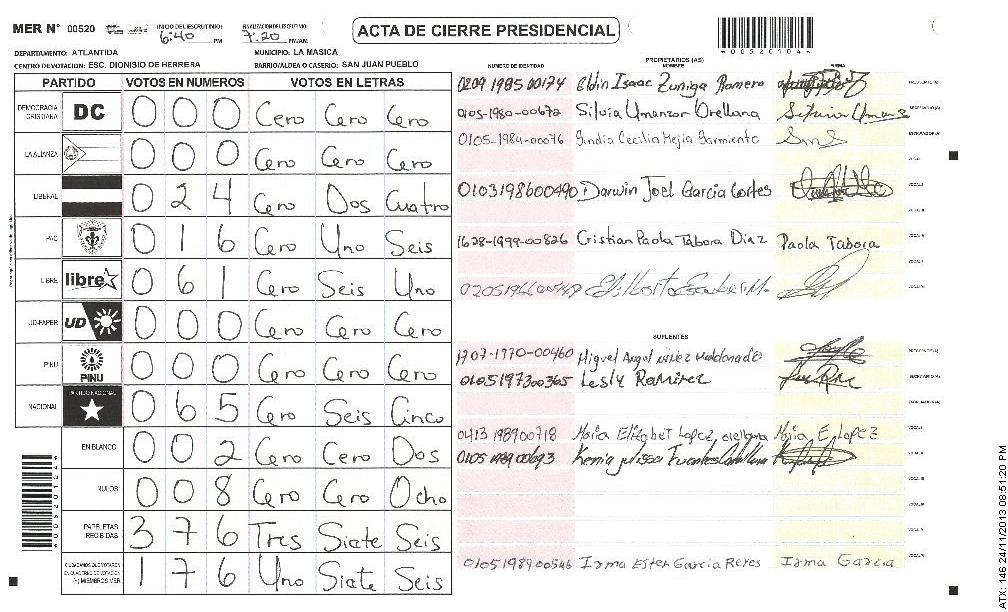 MER N° 00520 INICIO DEL ESCRUTINIO: 6:40 PM FINALIZACION DEL ESCRUTINIO: 7:20 PM/AM
ACTA DE CIERRE PRESIDENCIAL
*00520104*
DEPARTAMENTO: ATLANTIDA MUNICIPIO: LA MASICA
CENTRO DE VOTACION: ESC. DIONISIO DE HERRERA BARRIO/ALDEA O CASERIO: SAN JUAN PUEBLO
PARTIDO VOTOS EN NUMEROS VOTOS EN LETRAS
DEMOCRACIA CRISTIANA DC 0 0 0 Cero Cero Cero
LA ALIANZA 0 0 0 Cero Cero Cero
LIBERAL 0 2 4 Cero Dos Cuatro
PAC 0 1 6 Cero Uno Seis
LIBRE libre 0 6 1 Cero Seis Uno
UD-FAPER UD 0 0 0 Cero Cero Cero
PINU PINU 0 0 0 Cero Cero Cero
NACIONAL PARTIDO NACIONAL 0 6 5 Cero Seis Cinco
EN BLANCO 0 0 2 Cero Cero Dos
NULOS 0 0 8 Cero Cero Ocho
PAPELETAS RECIBIDAS 3 7 6 Tres Siate Seis
CIUDADANOS QUE VOTARON EN CUADERNO DE VOTACION (+) MIEMBROS MER 1 7 6 Uno Siate Seis
PROPIETARIOS (AS)
NUMERO DE IDENTIDAD NOMBRE FIRMA
0209 1985 00174 Elvin Isaac Zuniga Romero PRESIDENTE(A)
0105-1980-00672 Silvia Umanzor Orellana Silvia Umanz SECRETARIO(A)
0105-1984-00076 Sindia Cecilia Mejia Sarmiento SmS ESCRUTADOR(A)
VOCAL I
0103198600490 Darwin Joel Garcia Cortes VOCAL II
VOCAL III
1628-1999-00826 Cristian Paola Tabora Diaz Paola Tabora VOCAL IV
VOCAL V
SUPLENTES
1707-1970-00460 Miguel Angel Nuñez Maldonado PRESIDENTE(A)
0105197300365 Lesly Ramirez SECRETARIO(A)
ESCRUTADOR(A)
0413 198900718 Maria Elizabet Lopez orellana Maria E Lopez VOCAL I
Kenia Julissa Fuentes VOCAL II
VOCAL III
VOCAL IV
0105198900546 Irma Ester Garcia Reyes Irma Garcia
ATX: 146 24/11/2013 08:51:20 PM